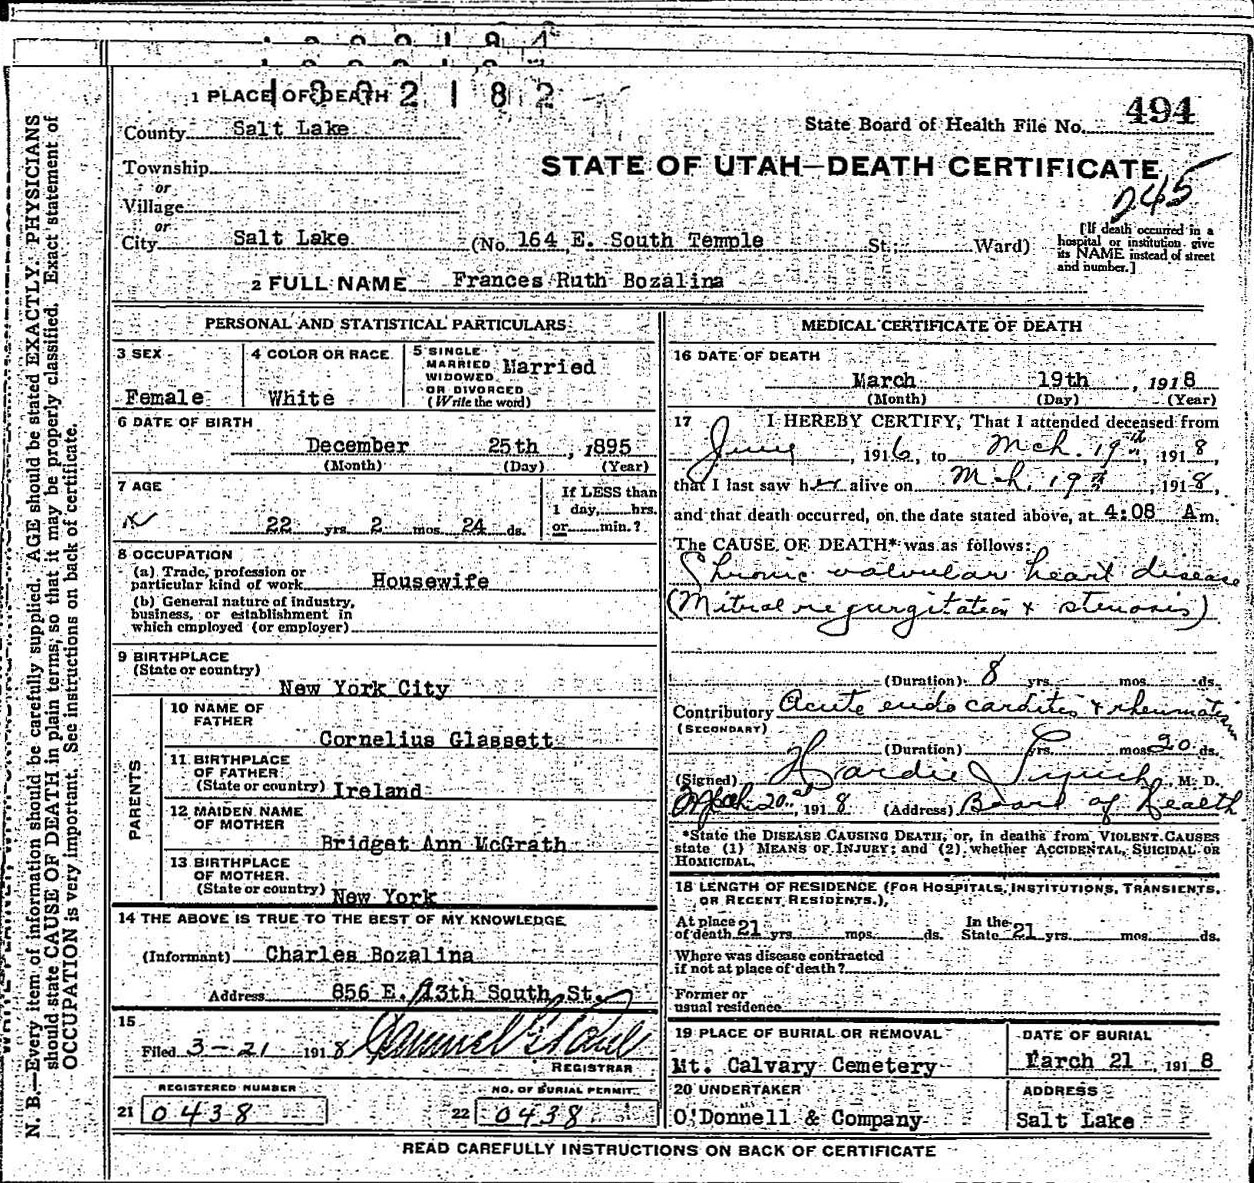 1 PLACE OF DEATH
1002182
County Salt Lake
State Board of Health File No. 494
Township
STATE OF UTAH—DEATH CERTIFICATE
or
Village
245
or
City Salt Lake (No. 164 E. South Temple St. Ward)
[If death occurred in a hospital or institution give its NAME instead of street and number.]
2 FULL NAME Frances Ruth Bozalina
PERSONAL AND STATISTICAL PARTICULARS
3 SEX
Female
4 COLOR OR RACE
White
5 SINGLE
MARRIED
WIDOWED
OR DIVORCED
(Write the word)
Married
6 DATE OF BIRTH
December 25th, 1895
(Month) (Day) (Year)
7 AGE
22 yrs. 2 mos. 24 ds.
If LESS than
1 day, hrs.
or min.?
8 OCCUPATION
(a) Trade, profession or
particular kind of work Housewife
(b) General nature of industry,
business, or establishment in
which employed (or employer)
9 BIRTHPLACE
(State or country)
New York City
PARENTS
10 NAME OF
FATHER
Cornelius Glassett
11 BIRTHPLACE
OF FATHER
(State or country) Ireland
12 MAIDEN NAME
OF MOTHER
Bridget Ann McGrath
13 BIRTHPLACE
OF MOTHER.
(State or country) New York
14 THE ABOVE IS TRUE TO THE BEST OF MY KNOWLEDGE
(Informant) Charles Bozalina
Address 856 E. 13th South St.
15
Filed 3-21 1918
REGISTRAR
REGISTERED NUMBER
21 0438
NO. OF BURIAL PERMIT
22 0438
MEDICAL CERTIFICATE OF DEATH
16 DATE OF DEATH
March 19th, 1918
(Month) (Day) (Year)
17 I HEREBY CERTIFY, That I attended deceased from
, 1916, to Mch. 19th, 1918,
that I last saw her alive on Mch. 19th, 1918,
and that death occurred, on the date stated above, at 4:08 Am.
The CAUSE OF DEATH* was as follows:
Chronic valvular heart disease
(Mitral regurgitation & stenosis)
(Duration) 8 yrs. mos. ds.
Contributory Acute endocarditis & rheumatism
(SECONDARY)
(Duration) yrs. mos. 20 ds.
(Signed) Hardie Lynch, M. D.
Mch 20th, 1918 (Address) Board of Health
*State the DISEASE CAUSING DEATH, or, in deaths from VIOLENT CAUSES
state (1) MEANS OF INJURY; and (2) whether ACCIDENTAL, SUICIDAL OR
HOMICIDAL.
18 LENGTH OF RESIDENCE (FOR HOSPITALS, INSTITUTIONS, TRANSIENTS,
OR RECENT RESIDENTS.)
At place
of death 21 yrs. mos. ds. In the State 21 yrs. mos. ds.
Where was disease contracted
if not at place of death?
Former or
usual residence
19 PLACE OF BURIAL OR REMOVAL
Mt. Calvary Cemetery
DATE OF BURIAL
March 21, 1918
20 UNDERTAKER
O'Donnell & Company
ADDRESS
Salt Lake
READ CAREFULLY INSTRUCTIONS ON BACK OF CERTIFICATE
N. B.—Every item of information should be carefully supplied. AGE should be stated EXACTLY. PHYSICIANS
should state CAUSE OF DEATH in plain terms, so that it may be properly classified. Exact statement of
OCCUPATION is very important. See instructions on back of certificate.